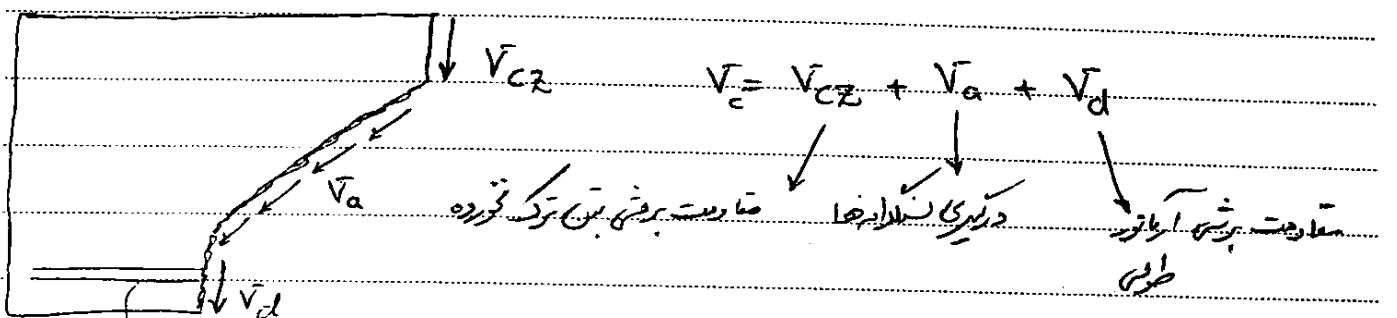 V_cz
V_c = V_cz + V_a + V_d
V_a
مقاومت برشی بتن ترک نخورده
درگیری سنگدانه‌ها
مقاومت برشی آرماتور
طولی
V_d